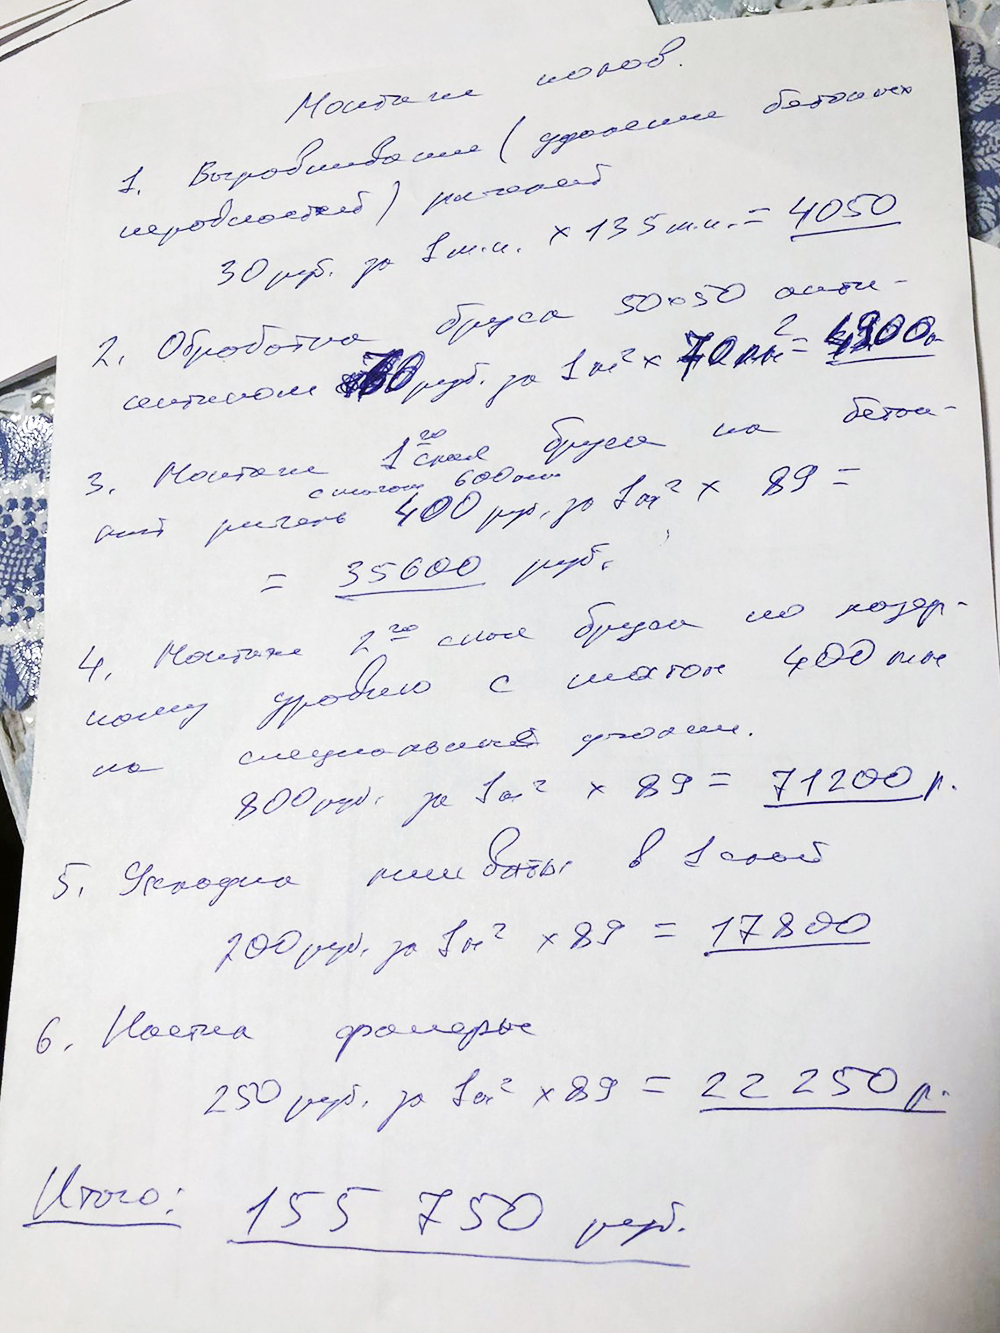 Монтаж полов.
1. Выравнивание (удаление бетонных
неровностей) ригелей
30 руб. за 1 м.п. × 135 м.п. = 4050
2. Обработка бруса 50×50 анти-
септиком 70 руб. за 1 м² × 70 м² = 4900
3. Монтаж 1го слоя бруса на бетон-
с шагом 600 мм
ный ригель 400 руб. за 1 м² × 89 =
= 35600 руб.
4. Монтаж 2го слоя бруса по лазер-
ному уровню с шагом 400 мм
на специальный
800 руб. за 1 м² × 89 = 71200 р.
5. Укладка мин ваты в 1 слой
200 руб. за 1 м² × 89 = 17800
6. Настил фанеры
250 руб. за 1 м² × 89 = 22 250 р.
Итого: 155 750 руб.